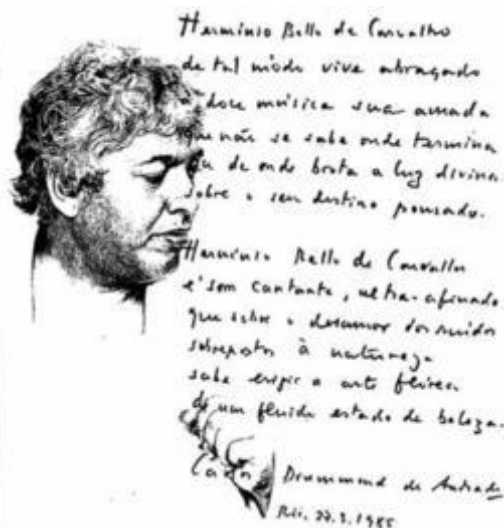 Herminio Bello de Carvalho
de tal modo vive abraçado
à doce música sua amada
que não se sabe onde termina
ou de onde brota a luz divina
sobre o seu destino pousado.
Herminio Bello de Carvalho
é som cantante, ultra-afinado
que sobre o desamor dos ruídos
sobrepostos à natureza
sabe erigir a arte
de um fluido estado de beleza.
Carlos Drummond de Andrade
Rio,